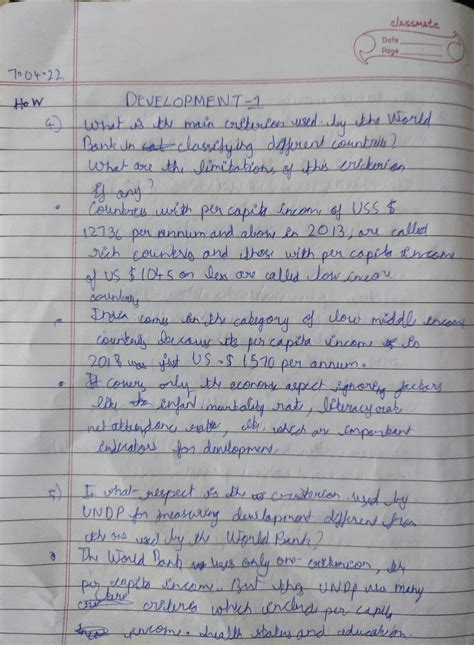 classmate
Date
Page
7.04.22
HOW
DEVELOPMENT-1
4) What is the main criterion used by the World
Bank in classifying different countries?
What are the limitations of this criterion
If any?
• Countries with per capita income of US$ $
12736 per annum and above in 2013, are called
rich countries and those with per capita income
of US $ 1045 or less are called low income
country
• India comes in the category of low middle income
countries because its per capita income in
2013 was just US $ 1570 per annum.
• It covers only the economic aspect ignoring factors
like infant mortality rate, literacy rate
net attendance ratio, etc which are important
indicators for development.
5) In what respect is the criterion used by
UNDP for measuring development different from
the used by the World Bank?
• The World Bank uses only one criterion, its
per capita income. But the UNDP use many
criteria which include per capita
income. health status and education.